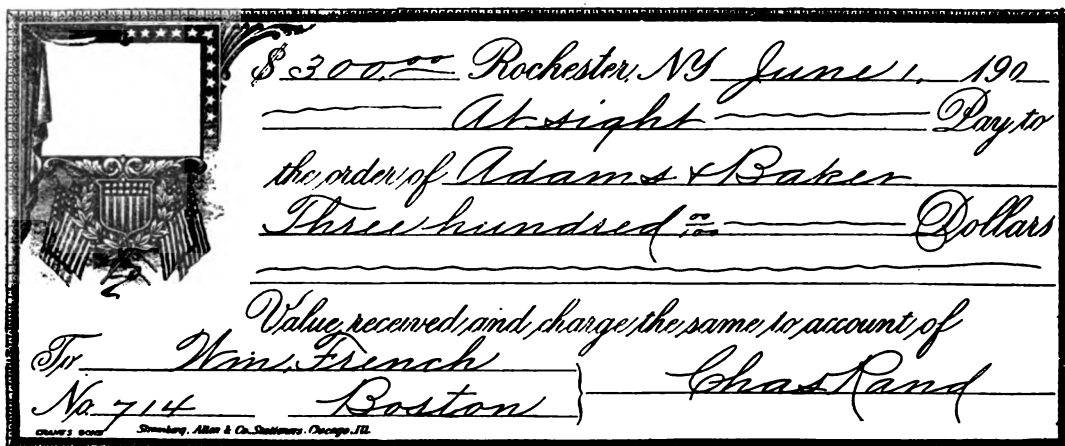 $ 300.00 Rochester, NY June 1, 190
At sight Pay to
the order of Adams & Baker
Three hundred 00/100 Dollars
Value received and charge the same to account of
To Wm. French
Chas Rand
No. 714 Boston
CRANE'S BOND Stromberg, Allen & Co. Stationers. Chicago, Ill.